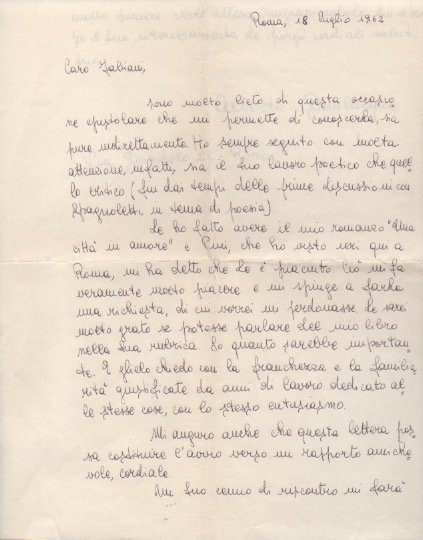 Roma, 18 luglio 1962
Caro Fabiani,
sono molto lieto di questa occasio
ne epistolare che mi permette di conoscerla, sia
pure indirettamente. Ho sempre seguito con molta
attenzione, infatti, sia il suo lavoro poetico che quel
lo critico (fin dai tempi delle prime discussioni con
Spagnoletti, in tema di poesia).
Le ho fatto avere il mio romanzo "Una
città in amore" e Pini, che ho visto ieri qui a
Roma, mi ha detto che Le è piaciuto. Ciò mi fa
veramente molto piacere e mi spinge a farle
una richiesta, di cui vorrei mi perdonasse. Le sarei
molto grato se potesse parlare del mio libro
nella Sua rubrica. So quanto sarebbe importan
te. E glielo chiedo con la franchezza e la familia
rità giustificate da anni di lavoro dedicato al
le stesse cose, con lo stesso entusiasmo.
Mi auguro anche che questa lettera pos
sa costituire l'avvio verso un rapporto amiche
vole, cordiale.
Un Suo cenno di riscontro mi farà